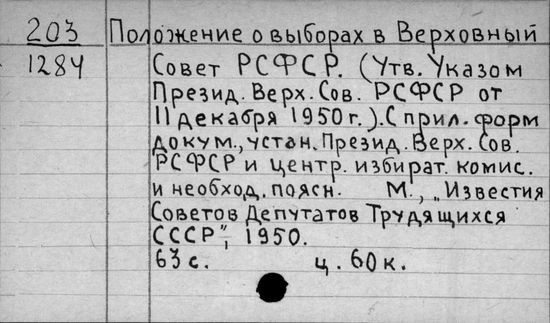 203 Положение о выборах в Верховный
1284 Совет РСФСР. (Утв. Указом
Презид. Верх. Сов. РСФСР от
11 декабря 1950 г.). С прил. форм
докум., устан. Презид. Верх. Сов.
РСФСР и центр. избират. комис.
и необход. поясн. М., „Известия
Советов Депутатов Трудящихся
СССР", 1950.
63 с. ц. 60 к.